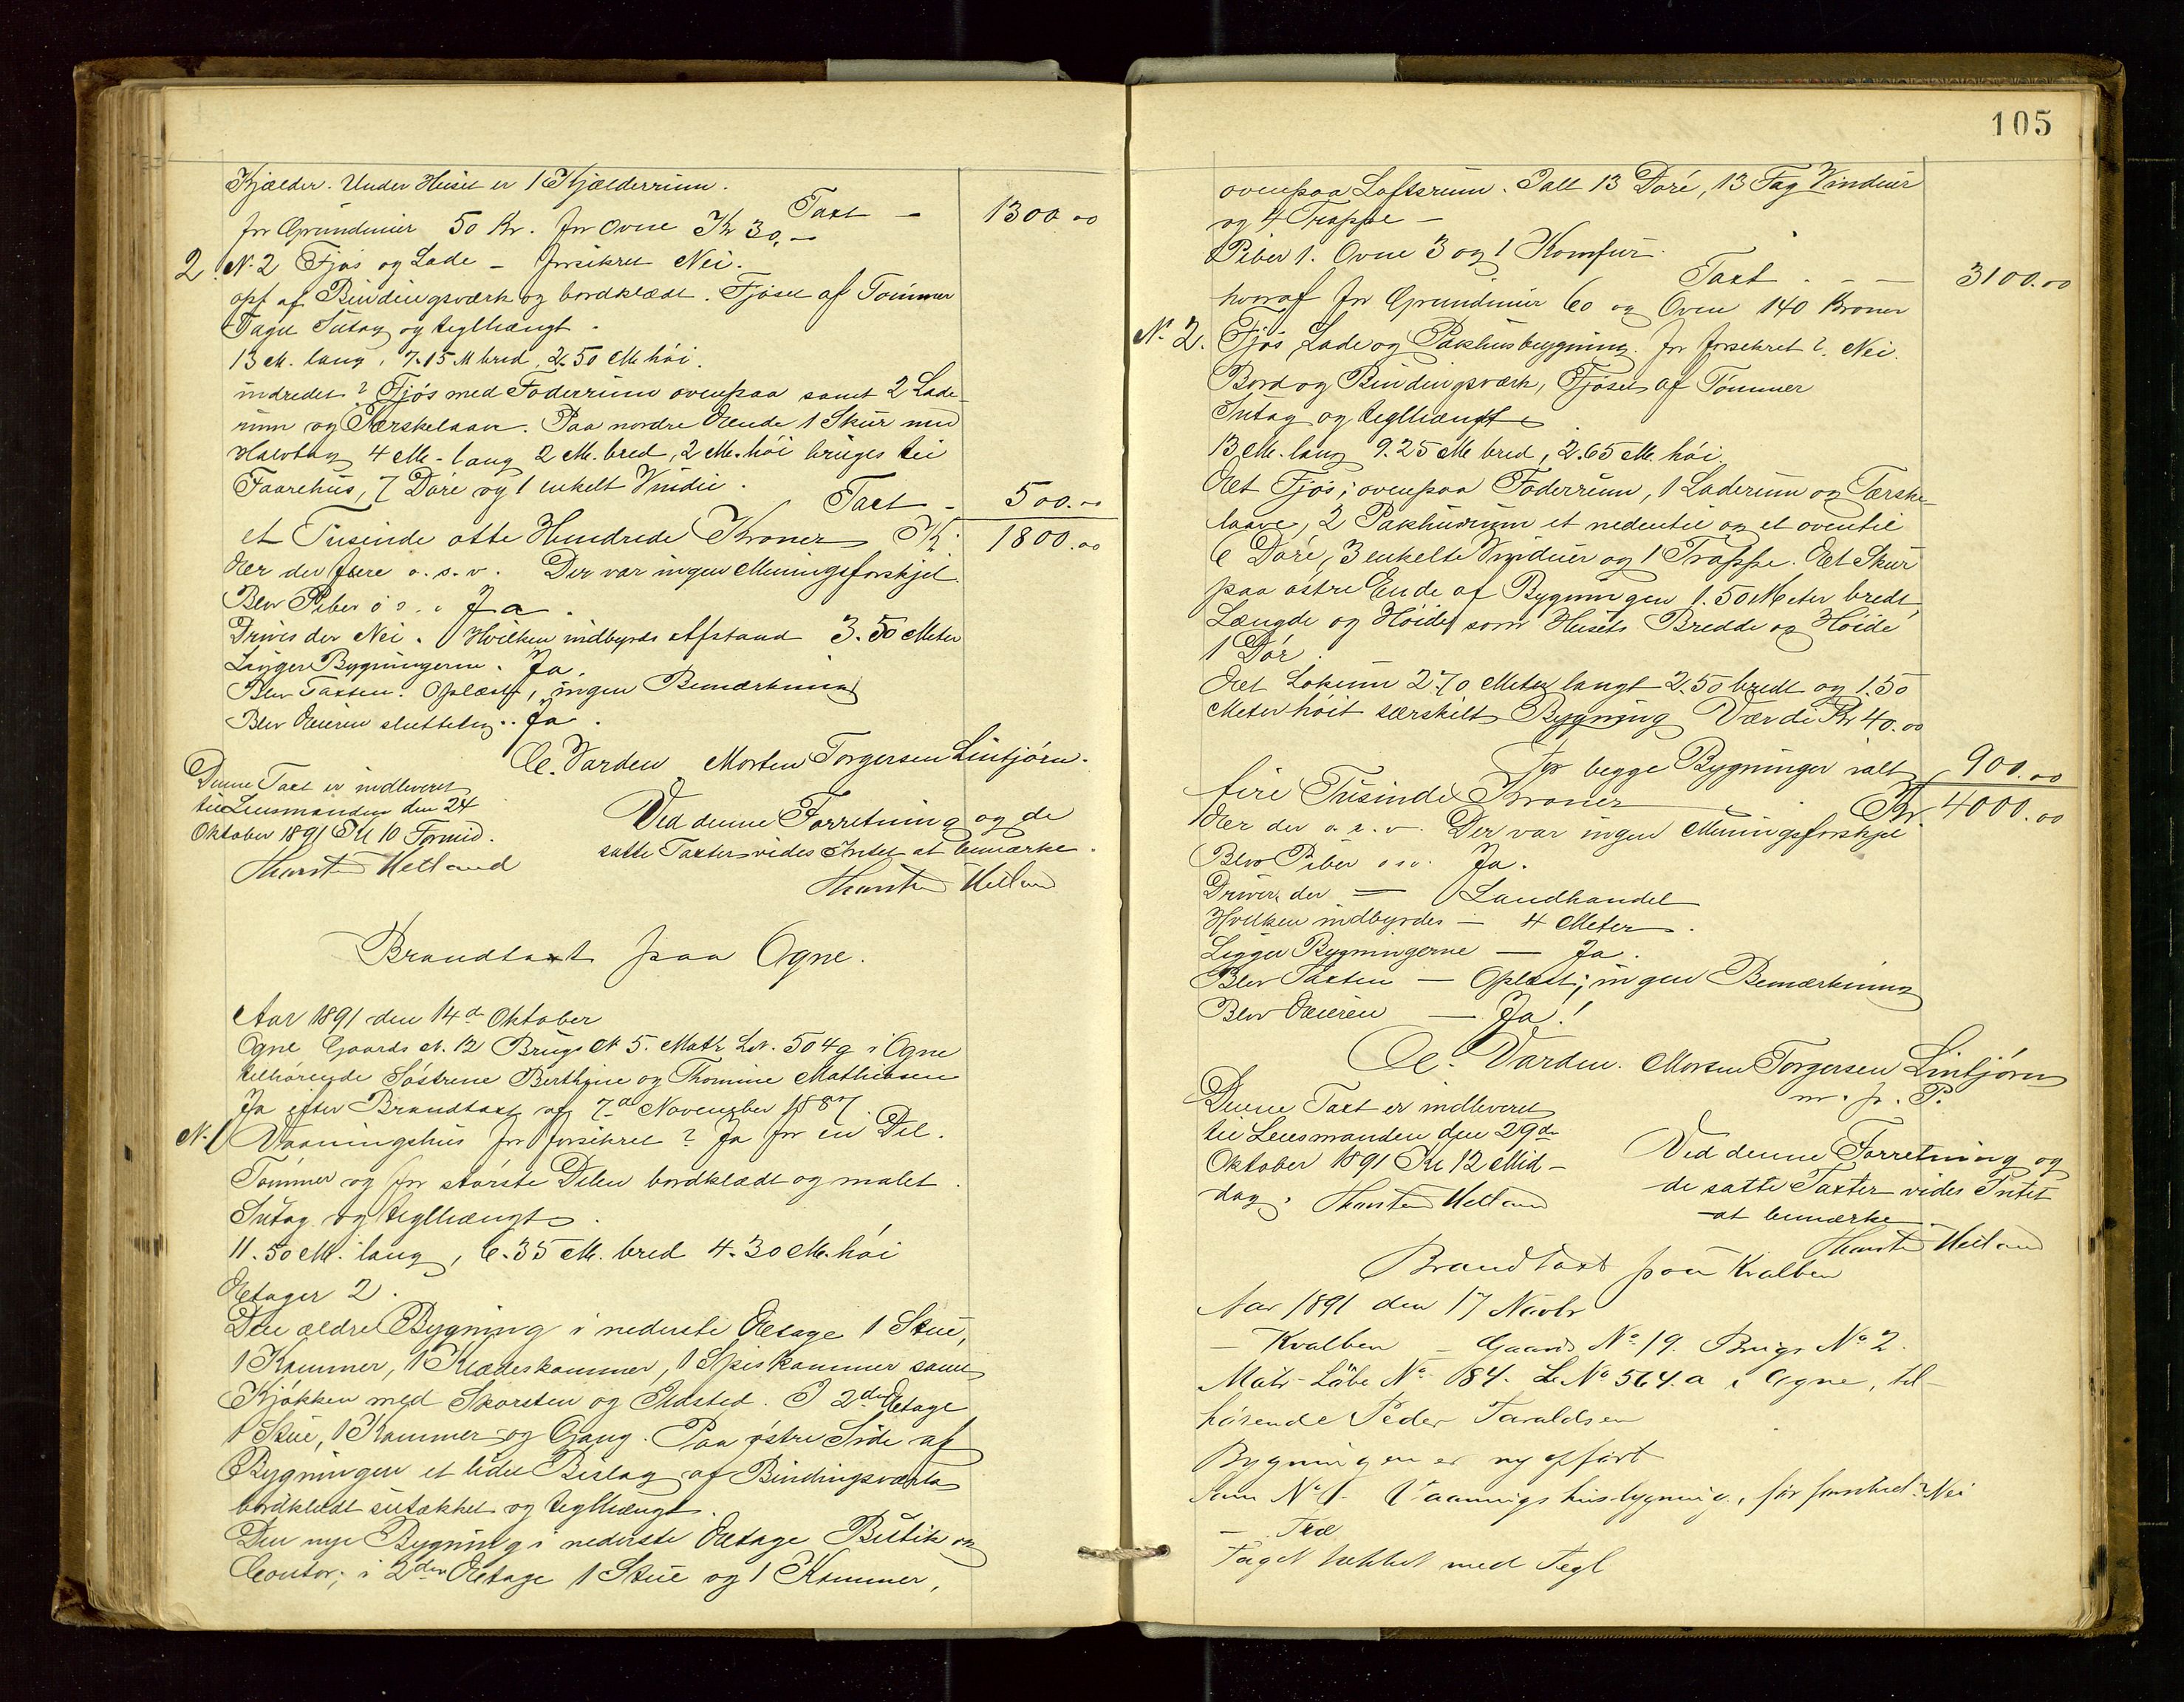 Kjælder. Under Huset er 1 Kjælderrum.
Taxt — 1300.00
for Grundmur 50 Kr. for Ovne Kr 30,—
2. N. 2 Fjøs og Lade — forsikret Nei.
opf af Bindingsværk og bordklædt. Fjøset af Tømmer
Taget Sutag og teglhængt.
13 M. lang, 7.15 M bred, 2.50 M høi.
indredet? Fjøs med Foderrum ovenpaa samt 2 Lade-
rum og Tærskelaan. Paa nordre Ende 1 Skur med
Halvtag 4 M. lang 2 M. bred, 2 M. høi bruges til
Faarehus, 7 Døre og 1 enkelt Vindu.
Taxt — 500.00
et Tusinde otte Hundrede Kroner Kr. 1800.00
Er der flere o. s. v. Der var ingen Meningsforskjel.
Blev Piber o s. v Ja.
Drives der Nei. Hvilken indbyrds Afstand 3.50 Meter
Ligger Bygningerne. Ja.
Blev Taxten. Oplæst, ingen Bemærkning
Blev Eieren sluttelig.. Ja.
E. Varden Morten Torgersen Lintjørn.
Denne Taxt er indleveret
til Lensmanden den 24
Oktober 1891 Kl 10 Formid.
Thorsten Hetland
Ved denne Forretning og de
satte Taxter vides Intet at bemærke.
Thorsten Hetland
Brandtaxt paa Ogne.
Aar 1891 den 14d Oktober
Ogne Gaards N. 12 Brugs N 5. Matr. L.N. 504g i Ogne
tilhørende Søstrene Berthine og Thomine Mathiasen
Ja efter Brandtaxt af 7d November 1887.
N. 1 Vaaningshus før forsikret? Ja for en Del.
Tømmer og for største Delen bordklædt og malet.
Sutag og teglhængt.
11.50 M. lang, 6.35 M. bred 4.30 M. høi
Etager 2.
Den ældre Bygning i nederste Etage 1 Stue,
1 Kammer, 1 Klædeskammer, 1 Spiskammer samt
Kjøkken med Skorsten og Ildsted. I 2den Etage
1 Stue, 1 Kammer og Gang. Paa østre Side af
Bygningen et lidet Bislag af Bindingsværk
bordklædt sutækket og teglhængt.
Den nye Bygning i nederste Etage Butik og
Contor; i 2den Etage 1 Stue og 1 Kammer,
105
ovenpaa Loftsrum. Ialt 13 Døre, 13 Fag Vinduer
og 4 Trappe —
Piber 1. Ovne 3 og 1 Komfur.
Taxt — — 3100.00
hvoraf for Grundmur 60 og Ovne 140 Kroner
N. 2. Fjøs, Lade og Pakhusbygning. før forsikret? Nei.
Bord og Bindingsværk, Fjøset af Tømmer
Sutag og teglhængt
13 M. lang 9.25 M bred, 2.65 M. høi.
Et Fjøs; ovenpaa Foderrum, 1 Laderum og Tærske-
laave, 2 Pakhusrum et nedentil og et oventil
6 Døre, 3 enkelte Vinduer og 1 Trappe. Et Skur
paa østre Ende af Bygningen 1.50 Meter bredt,
Længde og Høide som Husets Bredde og Høide
1 Dør.
Et Lokum 2.70 Meter langt 2.50 bredt og 1.50
Meter høit særskilt Bygning Værdi Kr 40.00
for begge Bygninger ialt 900.00
fire Tusinde Kroner Kr. 4000.00
Er der o. s. v. Der var ingen Meningsforskjel
Blev Piber o s v. Ja.
Driver der — Landhandel
Hvilken indbyrdes — 4 Meter.
Ligger Bygningerne — Ja.
Blev Taxten — Oplæst; ingen Bemærkning
Blev Eieren — Ja!
E. Varden. Morten Torgersen Lintjørn
m. p. P.
Denne Taxt er indleveret
til Lensmanden den 29de
Oktober 1891 Kl 12 Mid-
dag. Thorsten Hetland
Ved denne Forretning og
de satte Taxter vides Intet
at bemærke.
Thorsten Hetland
Brandtaxt paa Kvalben
Aar 1891 den 17 Novbr
— Kvalben — Gaards No 19. Brugs No 2.
Matr. Løbe No 184. L. No 564.a i Ogne, til-
hørende Peder Taraldsen
Bygningen er ny opført
Som No 1. Vaaningshusbygning, før forsikret? Nei
— Træ
Taget tækket med Tegl